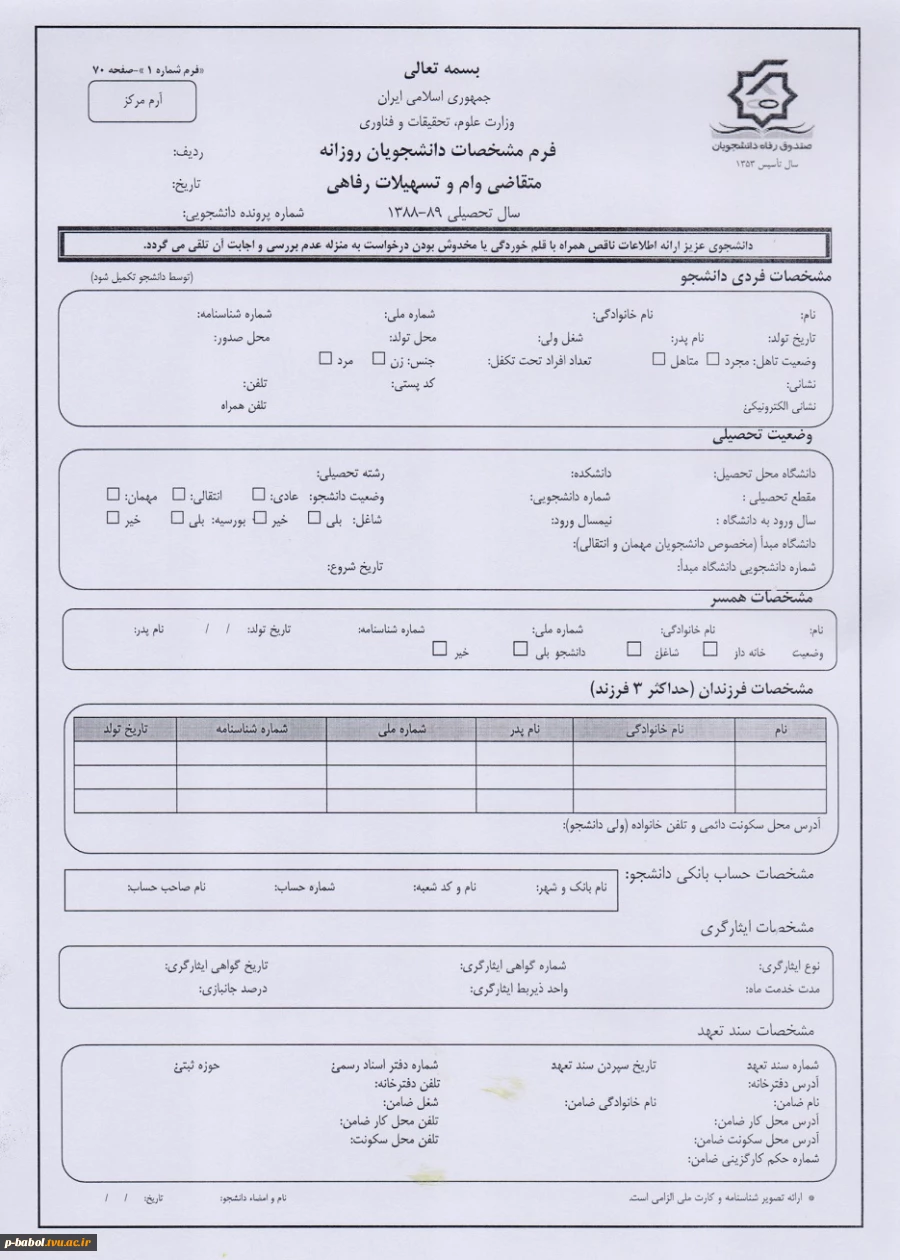 بسمه تعالی
«فرم شماره ۱»-صفحه ۷۰
جمهوری اسلامی ایران
آرم مرکز
وزارت علوم، تحقیقات و فناوری
صندوق رفاه دانشجویان
سال تأسیس ۱۳۵۳
فرم مشخصات دانشجویان روزانه
ردیف:
متقاضی وام و تسهیلات رفاهی
تاریخ:
سال تحصیلی ۸۹-۱۳۸۸
شماره پرونده دانشجویی:
دانشجوی عزیز ارائه اطلاعات ناقص همراه با قلم خوردگی یا مخدوش بودن درخواست به منزله عدم بررسی و اجابت آن تلقی می گردد.
مشخصات فردی دانشجو (توسط دانشجو تکمیل شود)
نام: نام خانوادگی: شماره ملی: شماره شناسنامه:
تاریخ تولد: نام پدر: شغل ولی: محل تولد: محل صدور:
وضعیت تاهل: مجرد □ متاهل □ تعداد افراد تحت تکفل: جنس: زن □ مرد □
نشانی: کد پستی: تلفن:
نشانی الکترونیکیٔ تلفن همراه
وضعیت تحصیلی
دانشگاه محل تحصیل: دانشکده: رشته تحصیلی:
مقطع تحصیلی : شماره دانشجویی: وضعیت دانشجو: عادی: □ انتقالی: □ مهمان: □
سال ورود به دانشگاه : نیمسال ورود: شاغل: بلی □ خیر □ بورسیه: بلی □ خیر □
دانشگاه مبدأ (مخصوص دانشجویان مهمان و انتقالی):
شماره دانشجویی دانشگاه مبدأ: تاریخ شروع:
مشخصات همسر
نام: نام خانوادگی: شماره ملی: شماره شناسنامه: تاریخ تولد: / / نام پدر:
وضعیت خانه دار □ شاغل □ دانشجو بلی □ خیر □
مشخصات فرزندان (حداکثر ۳ فرزند)
نام نام خانوادگی نام پدر شماره ملی شماره شناسنامه تاریخ تولد
آدرس محل سکونت دائمی و تلفن خانواده (ولی دانشجو):
مشخصات حساب بانکی دانشجو:
نام بانک و شهر: نام و کد شعبه: شماره حساب: نام صاحب حساب:
مشخصات ایثارگری
نوع ایثارگری: شماره گواهی ایثارگری: تاریخ گواهی ایثارگری:
مدت خدمت ماه: واحد ذیربط ایثارگری: درصد جانبازی:
مشخصات سند تعهد
شماره سند تعهد تاریخ سپردن سند تعهد شماره دفتر اسناد رسمیٔ حوزه ثبتیٔ
آدرس دفترخانه: تلفن دفترخانه:
نام ضامن: نام خانوادگی ضامن: شغل ضامن:
آدرس محل کار ضامن: تلفن محل کار ضامن:
آدرس محل سکونت ضامن: تلفن محل سکونت:
شماره حکم کارگزینی ضامن:
ارائه تصویر شناسنامه و کارت ملی الزامی است. نام و امضاء دانشجو: تاریخ: / /
p-babol.tvu.ac.ir